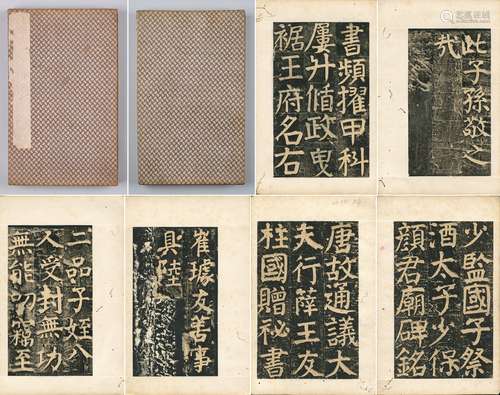 書頻擢甲科
屢升循政曳
裾王府名右
此子孫敬之
哉
二品子姪八
人受封無功
無能叨竊至
崔璩友善事
具陸
唐故通議大
夫行薛王友
柱國贈祕書
少監國子祭
酒太子少保
顏君廟碑銘